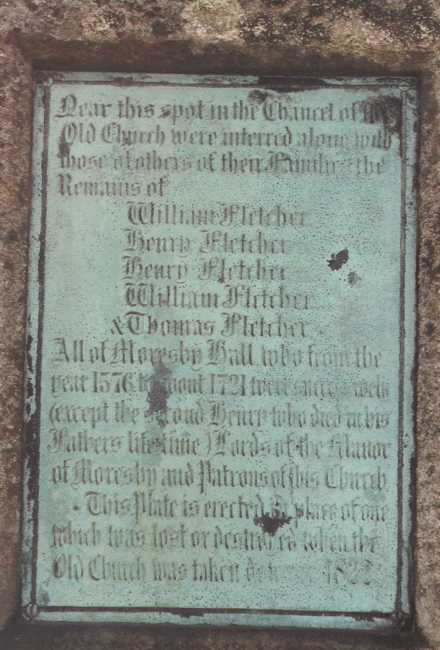 Near this spot in the Chancel of the
Old Church were interred along with
those of others of their Families the
Remains of
William Fletcher
Henry Fletcher
Henry Fletcher
William Fletcher
& Thomas Fletcher
All of Moresby Hall who from the
year 1576 to about 1721 were successively
(except the second Henry who died in his
Fathers lifetime) Lords of the Manor
of Moresby and Patrons of this Church
This Plate is erected in place of one
which was lost or destroyed when the
Old Church was taken down 1822